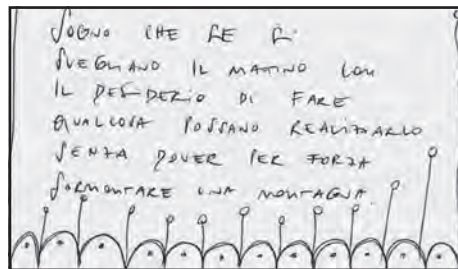 SOGNO CHE SE SI
SVEGLIANO IL MATTINO CON
IL DESIDERIO DI FARE
QUALCOSA POSSANO REALIZZARLO
SENZA DOVER PER FORZA
SORMONTARE UNA MONTAGNA.